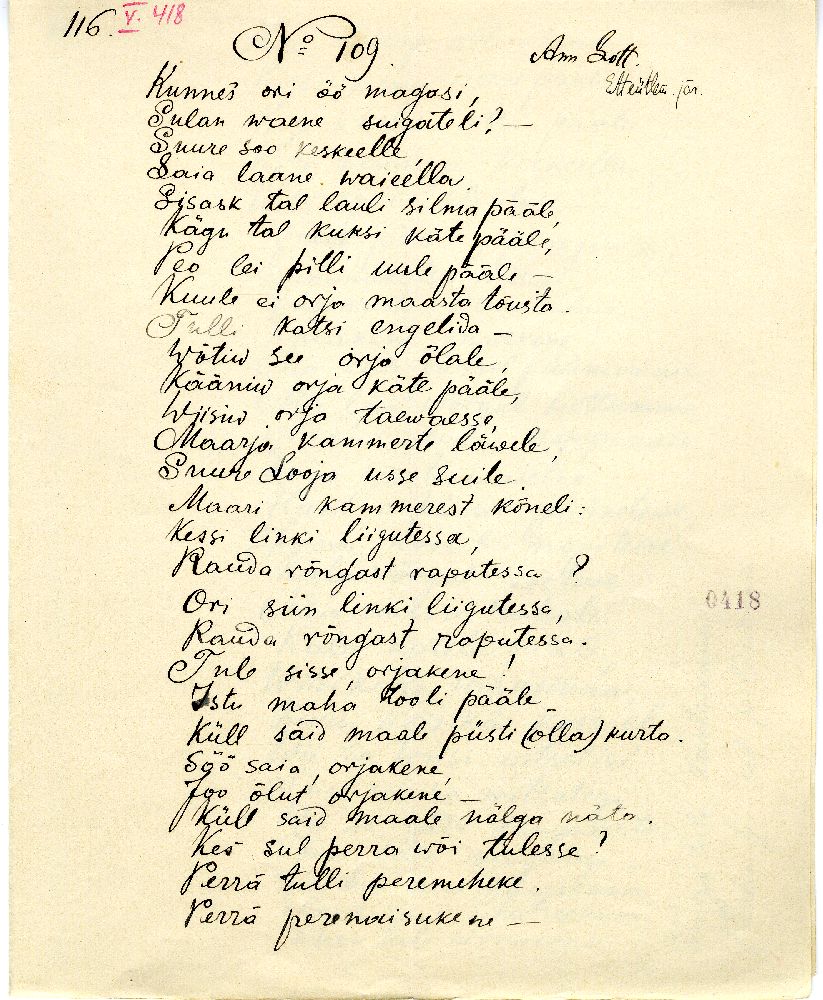 116. V. 418
No 109
Ann Gott.
Etteütlem. jär.
Kunnes ori öö magasi,
Sulan waene suigateli? —
Suure soo keskeelle,
Laia laane waieella.
Sisask tal lauli silma pääle,
Kägu tal kuksi käte pääle,
Peo lei pilli uule pääle —
Kuule ei orja maasta tõusta.
Tulli katsi engelida —
Wõtiw see orja õlale,
Kääniw orja käte pääle,
Wiisiw orja taewaesse,
Maarja kammerte läwele,
Suure Looja usse suile.
Maari kammerest kõneli:
Kessi linki liigutessa,
Rauda rõngast raputessa?
Ori siin linki liigutessa,
Rauda rõngast raputessa.
Tule sisse, orjakene!
Istu maha tooli pääle
Küll said maale püsti (olla) kurta.
Söö saia, orjakene,
Joo õlut orjakene —
Küll said maale nälga näta.
Kes sul perra wõi tulesse?
Perrä tulli peremeheke.
Perrä perenaisukene —
0418